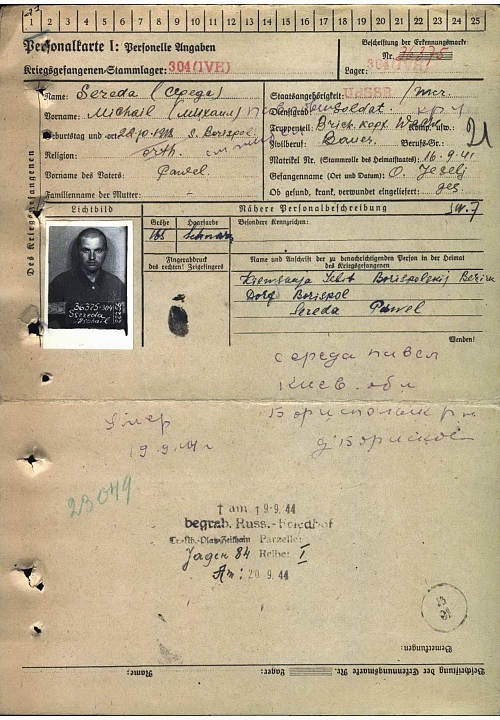 1 2 3 4 5 6 7 8 9 10 11 12 13 14 15 16 17 18 19 20 21 22 23 24 25
Personalkarte I: Personelle Angaben
Kriegsgefangenen-Stammlager: 304 (IVE)
Beschriftung der Erkennungsmarke
Nr. 36375
Lager: 304 (IVE)
Des Kriegsgefangenen
Name: Sereda (Середа)
Vorname: Michail (Михаил)
Geburtstag und -ort: S. Borispol
Religion: orth.
Vorname des Vaters: Pawel
Familienname der Mutter: -
Staatsangehörigkeit: UdSSR
Dienstgrad: Soldat
Truppenteil: Komp. usw.:
Zivilberuf: Bauer Berufs-Gr.:
Matrikel Nr. (Stammrolle des Heimatstaates) 16.9.41
Gefangennahme (Ort und Datum): O.
Ob gesund, krank, verwundet eingeliefert: ges.
Lichtbild
Nähere Personalbeschreibung
Größe Haarfarbe Besondere Kennzeichen:
165 Schwarz
Fingerabdruck
des rechten! Zeigefingers
Name und Anschrift der zu benachrichtigenden Person in der Heimat
des Kriegsgefangenen
Borispol
Sereda Pawel
36375-304
Sereda
Michail
Wenden!
Середа Павел
Киев. обл
д Борисполь
Умер
19.9.44г
23049.
† am 19.9.44
begrab. Russ.-Friedhof
Tr.-Üb.-Platz Zeithain Parzelle:
Jagen 84 Reihe: I
Am: 20.9.44
Bemerkungen:
Name: Lager: Beschriftung der Erkennungsmarke Nr.